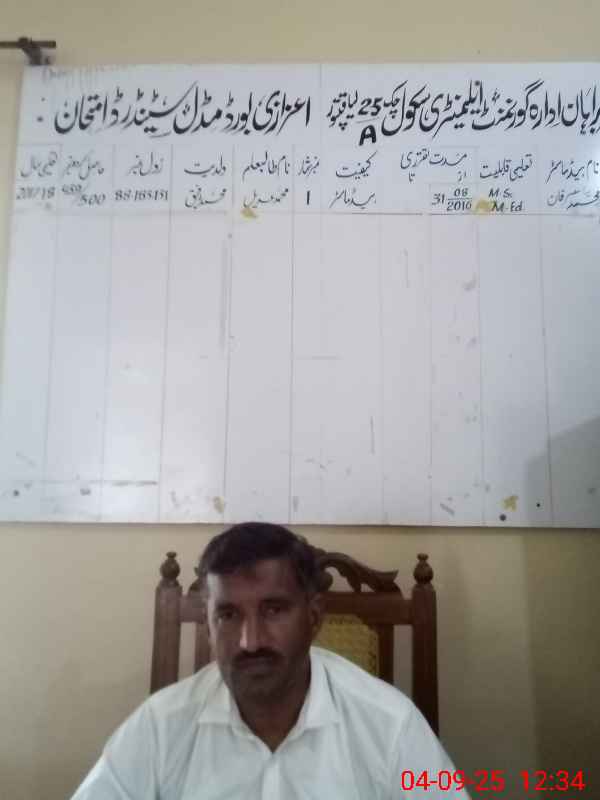 سربراہان ادارہ گورنمنٹ ایلیمنٹری سکول چک 25A لیاقتپور
نام ہیڈ ماسٹر تعلیمی قابلیت مدت تقرری از تا کیفیت
محمد عرفان M.Sc M.Ed 31 08 2016 ہیڈ ماسٹر
اعزازی بورڈ مڈل سٹینڈرڈ امتحان
نمبر شمار نام طالبعلم ولدیت رول نمبر حاصل کردہ نمبر تعلیمی سال
1 محمد عدیل محمد رفیق 88-165-151 /500 2017/18
04-09-25 12:34